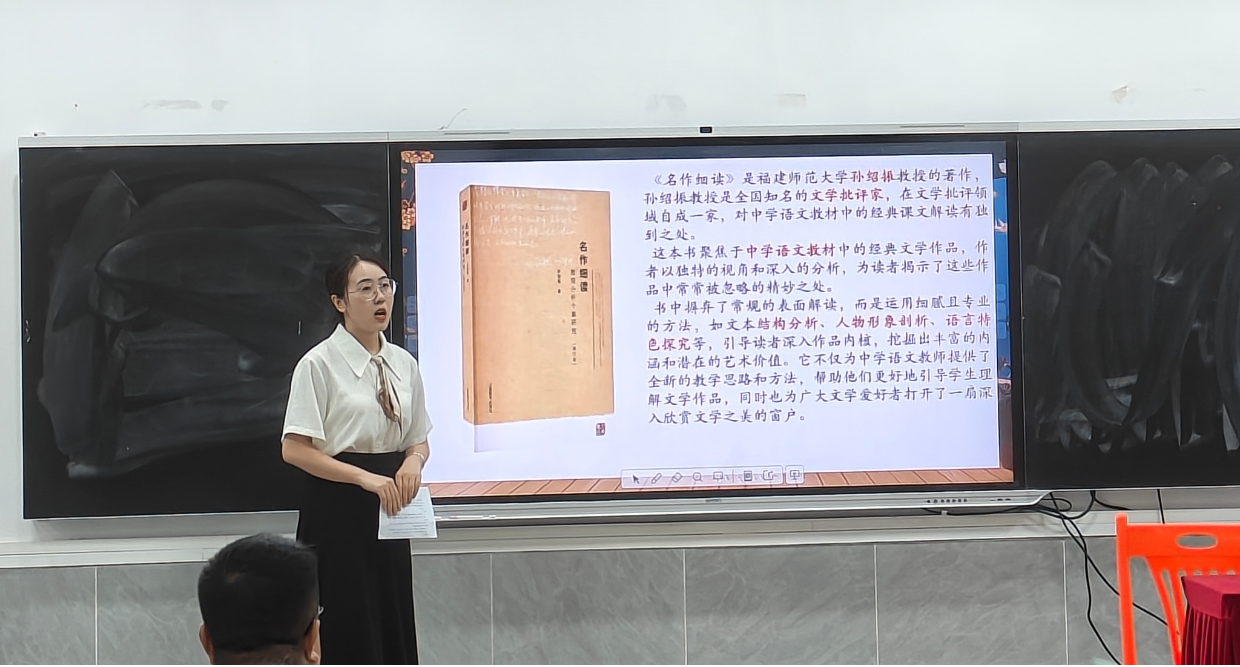 《名作细读》是福建师范大学孙绍振教授的著作,
孙绍振教授是全国知名的文学批评家，在文学批评领
域自成一家，对中学语文教材中的经典课文解读有独
到之处。
这本书聚焦于中学语文教材中的经典文学作品，作
者以独特的视角和深入的分析，为读者揭示了这些作
品中常常被忽略的精妙之处。
书中摒弃了常规的表面解读，而是运用细腻且专业
的方法，如文本结构分析、人物形象剖析、语言特
色探究等，引导读者深入作品内核，挖掘出丰富的内
涵和潜在的艺术价值。它不仅为中学语文教师提供了
全新的教学思路和方法，帮助他们更好地引导学生理
解文学作品，同时也为广大文学爱好者打开了一扇深
入欣赏文学之美的窗户。
名作细读
微观分析个案研究